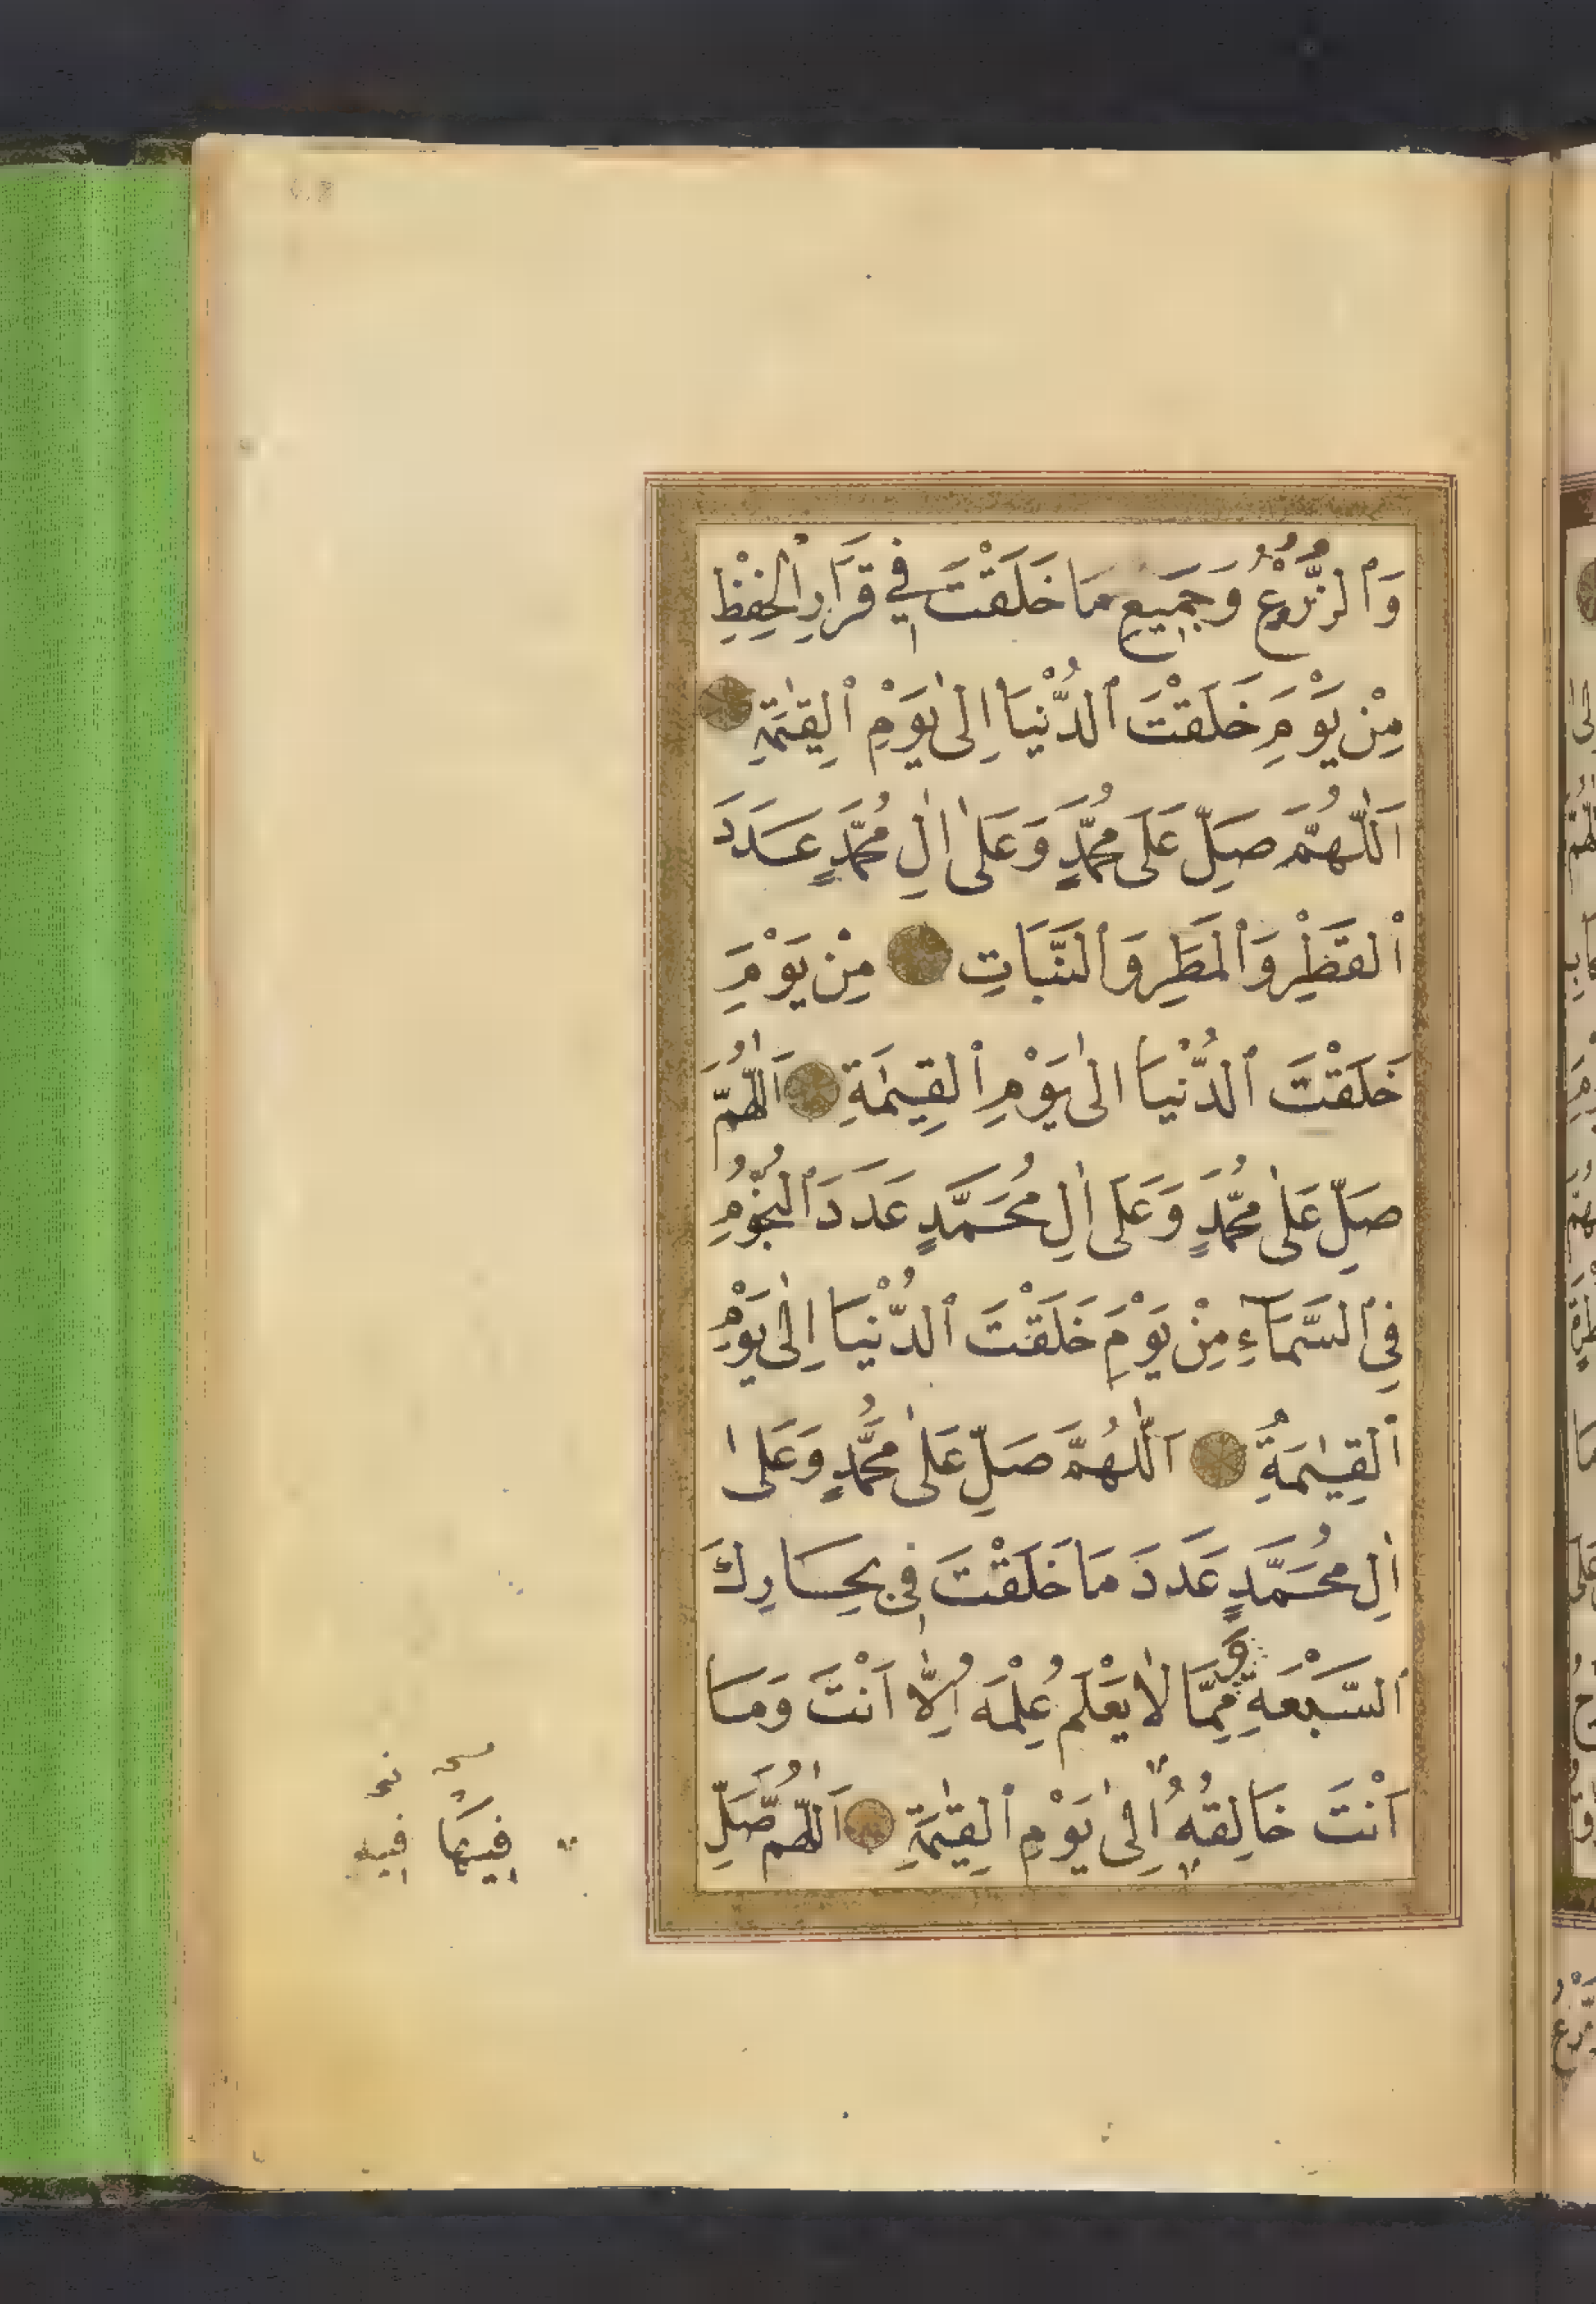 وَٱلزُّرُوْعِ وَجَمِيعِ مَا خَلَقْتَ فِي قَرَارِ الْحِفْظِ
مِنْ يَوْمِ خَلَقْتَ ٱلدُّنْيَا اِلىٰ يَوْمِ ٱلْقِيٰمَةِ
اَللّٰهُمَّ صَلِّ عَلَى مُحَمَّدٍ وَعَلىٰ اٰلِ مُحَمَّدٍ عَدَدَ
ٱلْقَطْرِ وَٱلْمَطَرِ وَٱلنَّبَاتِ مِنْ يَوْمِ
خَلَقْتَ ٱلدُّنْيَا الىٰ يَوْمِ ٱلْقِيٰمَةِ اَللّٰهُمَّ
صَلِّ عَلىٰ مُحَمَّدٍ وَعَلَى اٰلِ مُحَمَّدٍ عَدَدَ ٱلنُّجُوْمِ
فِي ٱلسَّمَاءِ مِنْ يَوْمِ خَلَقْتَ ٱلدُّنْيَا اِلىٰ يَوْمِ
ٱلْقِيٰمَةِ اَللّٰهُمَّ صَلِّ عَلىٰ مُحَمَّدٍ وَعَلىٰ
اٰلِ مُحَمَّدٍ عَدَدَ مَا خَلَقْتَ فِي بِحَارِكَ
ٱلسَّبْعَةِ مِمَّا لَا يَعْلَمُ عِلْمَهُ اِلَّا اَنْتَ وَمَا
اَنْتَ خَالِقُهُ اِلىٰ يَوْمِ ٱلْقِيٰمَةِ اَللّٰهُمَّ صَلِّ
فِيهَا فِيهِ